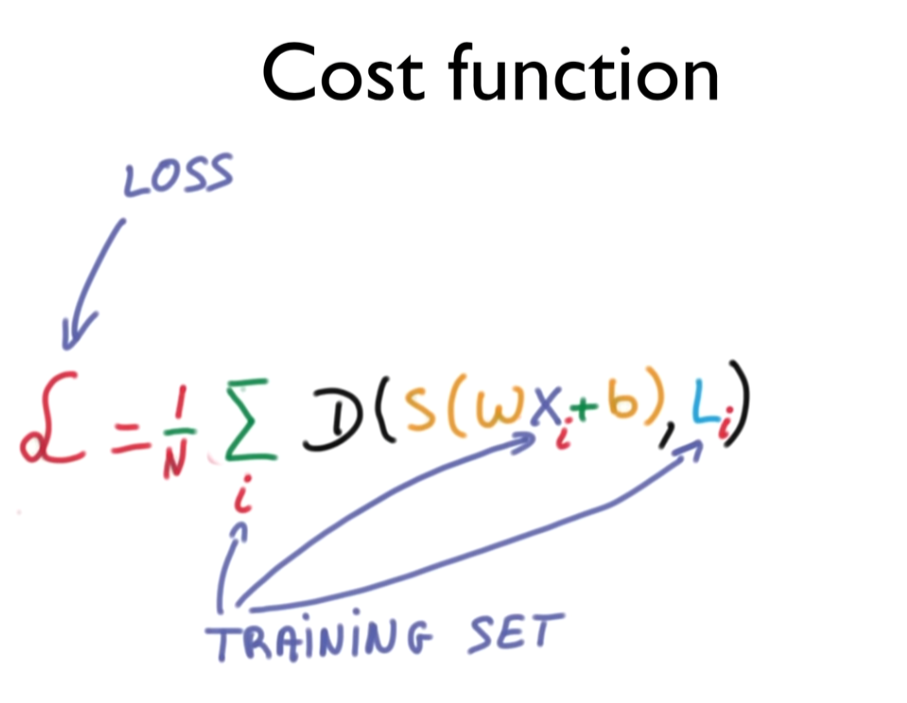 Cost function
LOSS
ℒ = 1/N Σ_i D(S(wX_i+b), L_i)
TRAINING SET